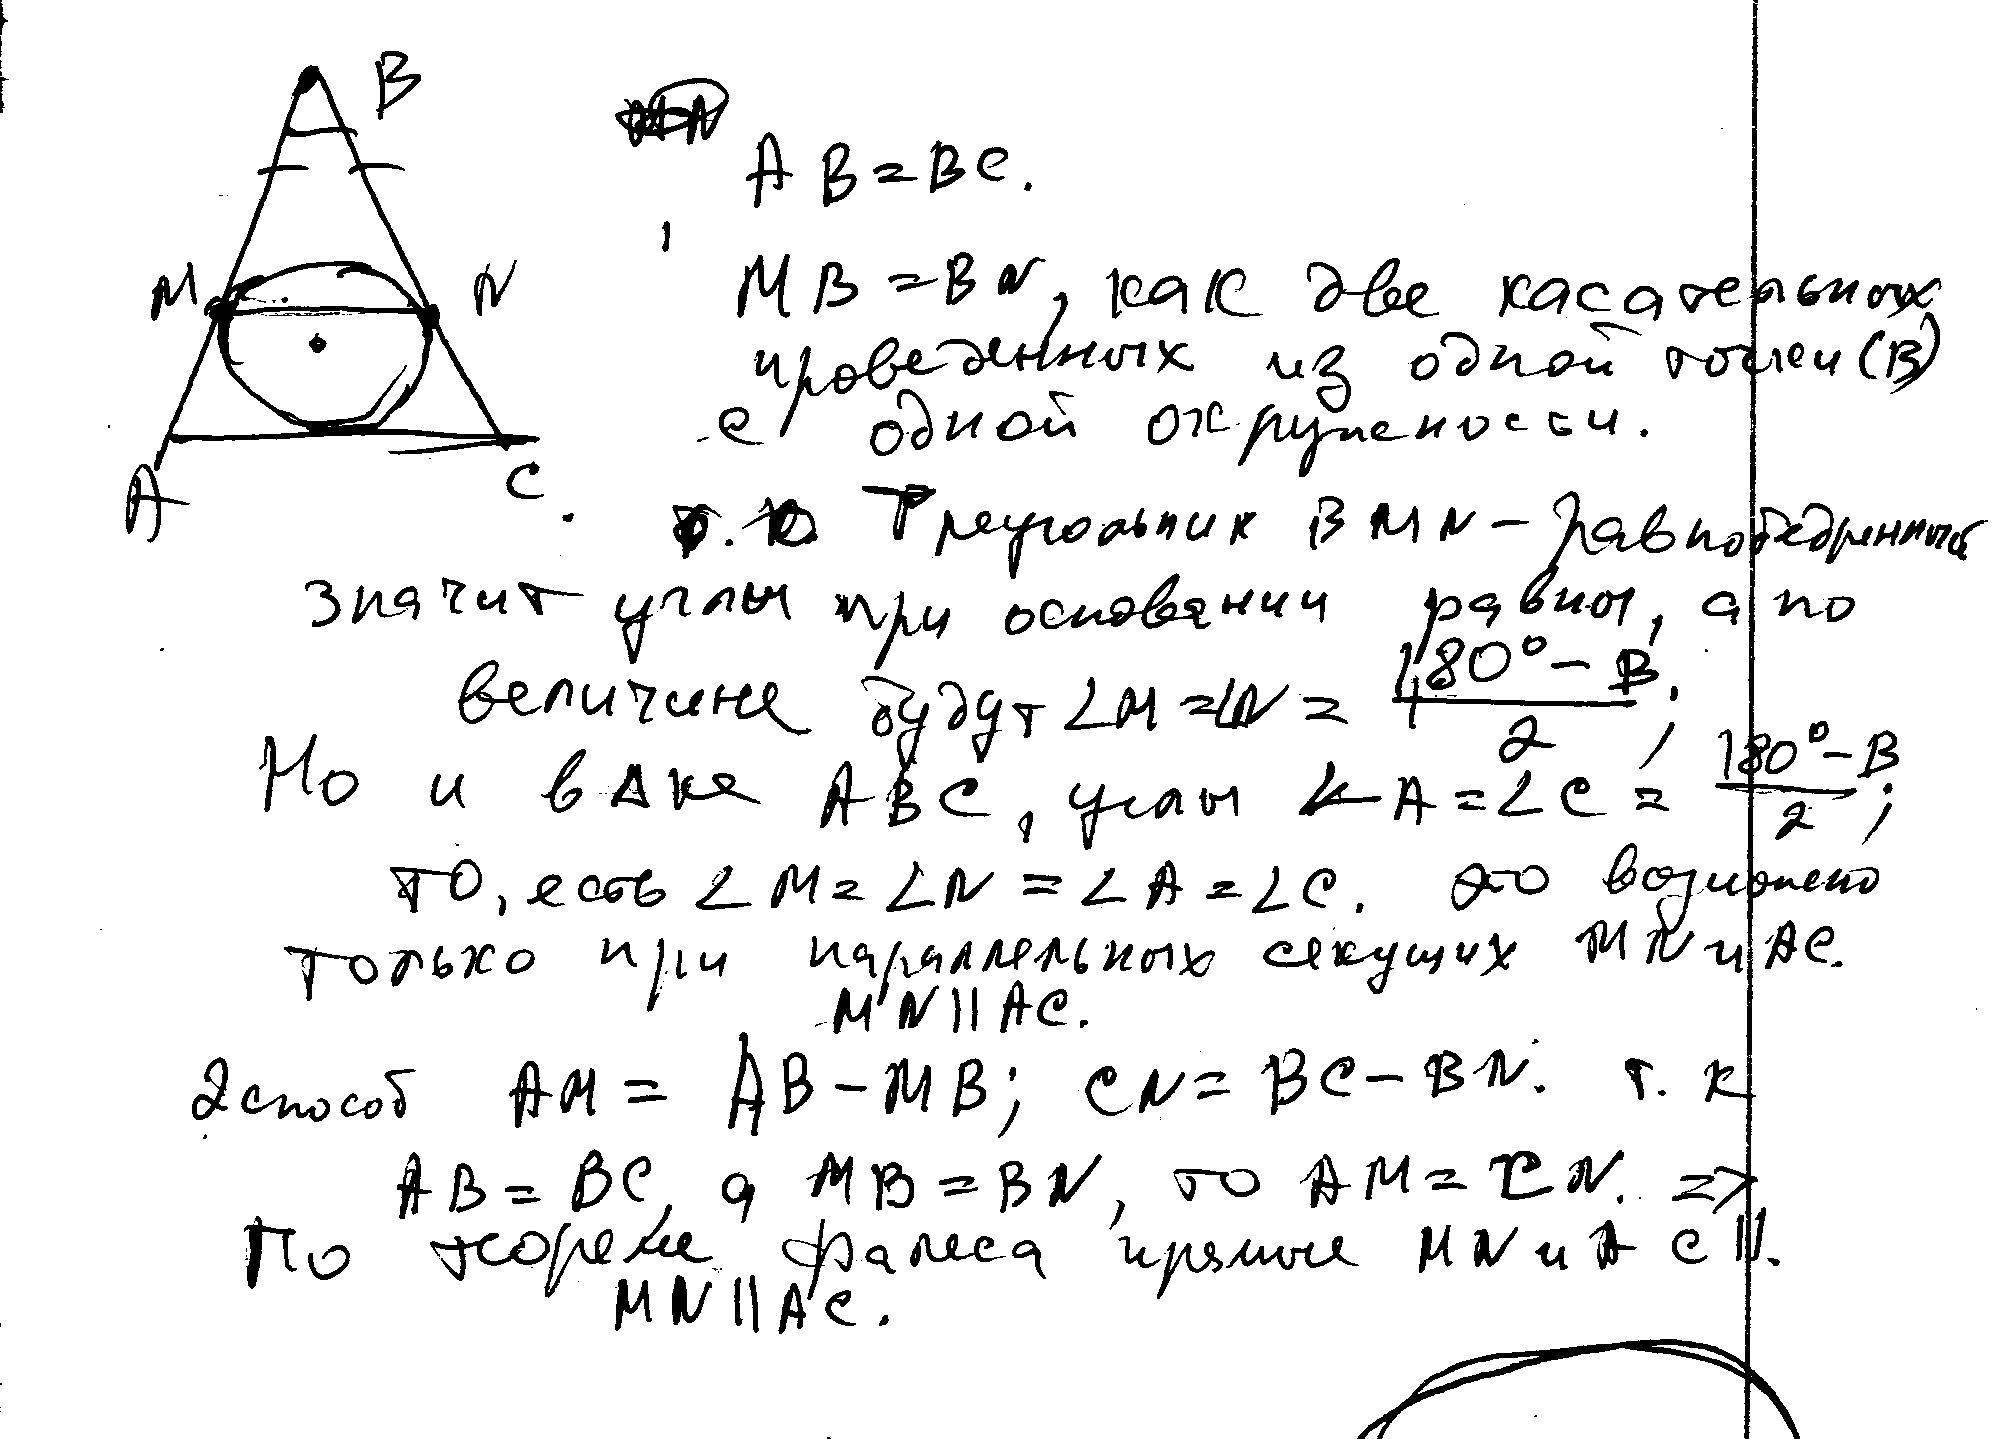 B
AB=BC.
M
N
MB=BN, как две касательных
проведенных из одной точки (B)
с одной окружности.
A
C
т.к. Треугольник BMN - равнобедренный
значит углы при основании равны, а по
величине будут ∠M=∠N= (180°-B)/2;
Но и в Δке ABC, углы ∠A=∠C= (180°-B)/2;
то, есть ∠M=∠N=∠A=∠C. это возможно
только при параллельных секущих MN и AC.
MN||AC.
2 способ AM=AB-MB; CN=BC-BN. т.к
AB=BC, а MB=BN, то AM=CN. =>
По теореме Фалеса прямые MN и AC ||.
MN||AC.